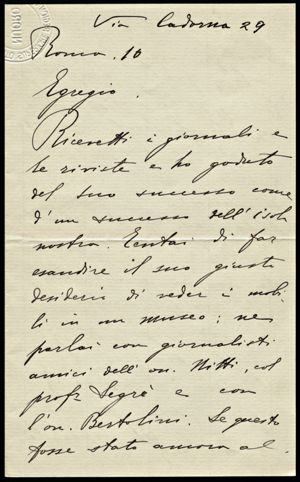 Via Cadorna 29
Roma. 10
Egregio.
Ricevetti i giornali e
le riviste e ho goduto
del suo successo come
d'un successo dell'isola
nostra. Tentai di far
esaudire il suo giusto
desiderio di veder i mobi-
li in un museo; ne
parlai con giornalisti
amici dell'on. Nitti, col
profr Segrè e con
l'on. Bertolini. Se questo
fosse stato ancora al